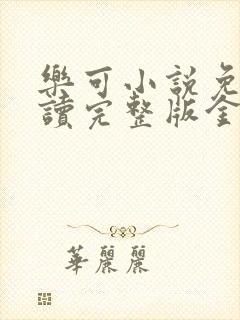 樂可小說免
讀完整版全
華麗麗